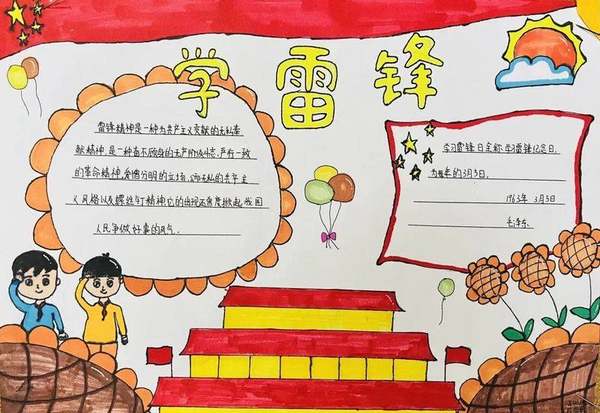 学雷锋
雷锋精神是一种为共产主义贡献的无私奉
献精神,是一种奋不顾身的无产阶级斗志,言行一致
的革命精神,爱憎分明的立场,无私的共产主
义风格以及螺丝钉精神它的出现掀起我国
人民争做好事的风气.
学习雷锋日全称学习雷锋纪念日.
为每年的3月5日.
1963年 3月5日
毛泽东.